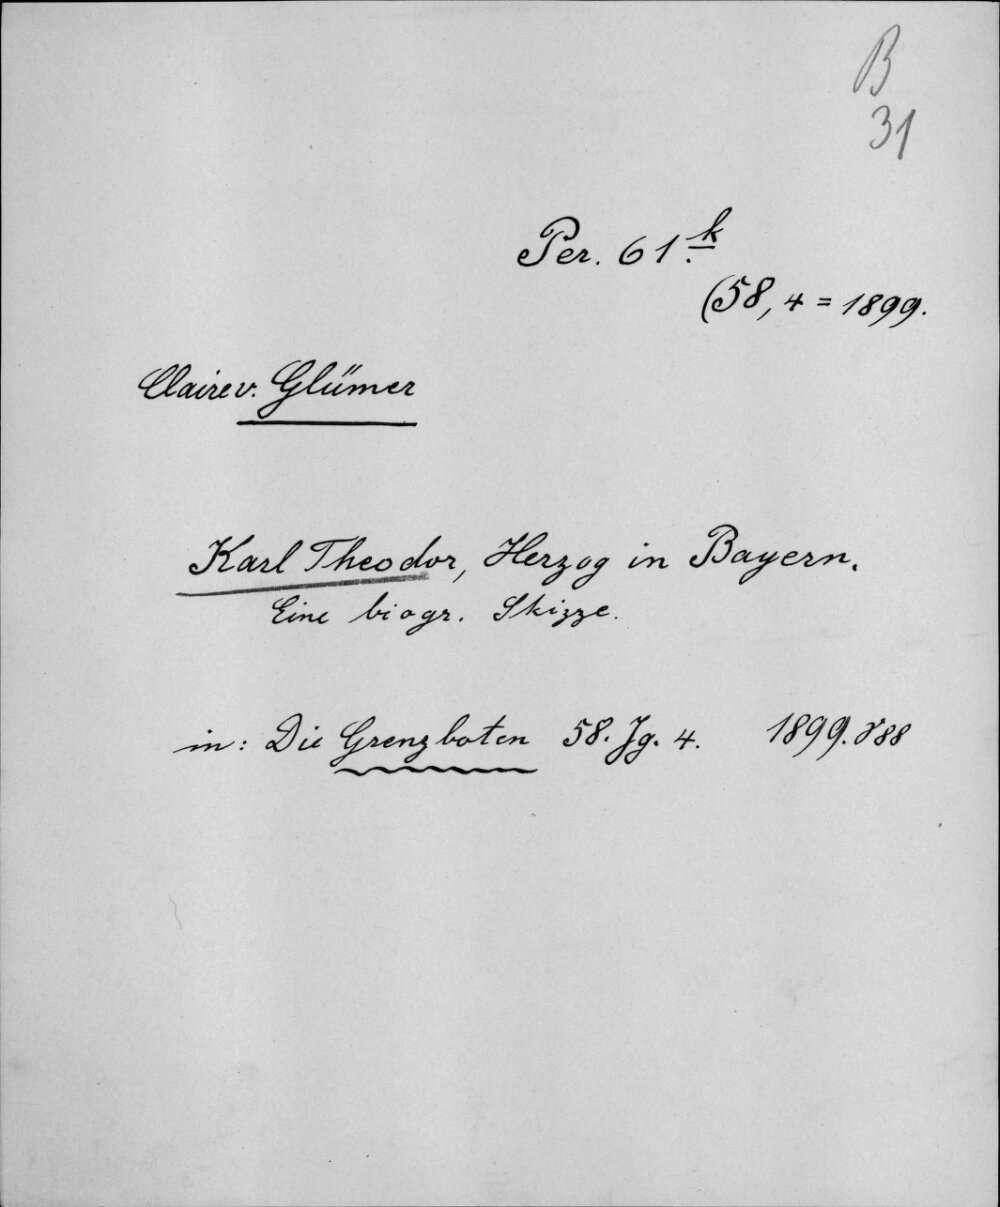 B
31
Per. 61.k
(58, 4 = 1899.
Claire v. Glümer
Karl Theodor, Herzog in Bayern.
Eine biogr. Skizze.
in: Die Grenzboten 58. Jg. 4. 1899.